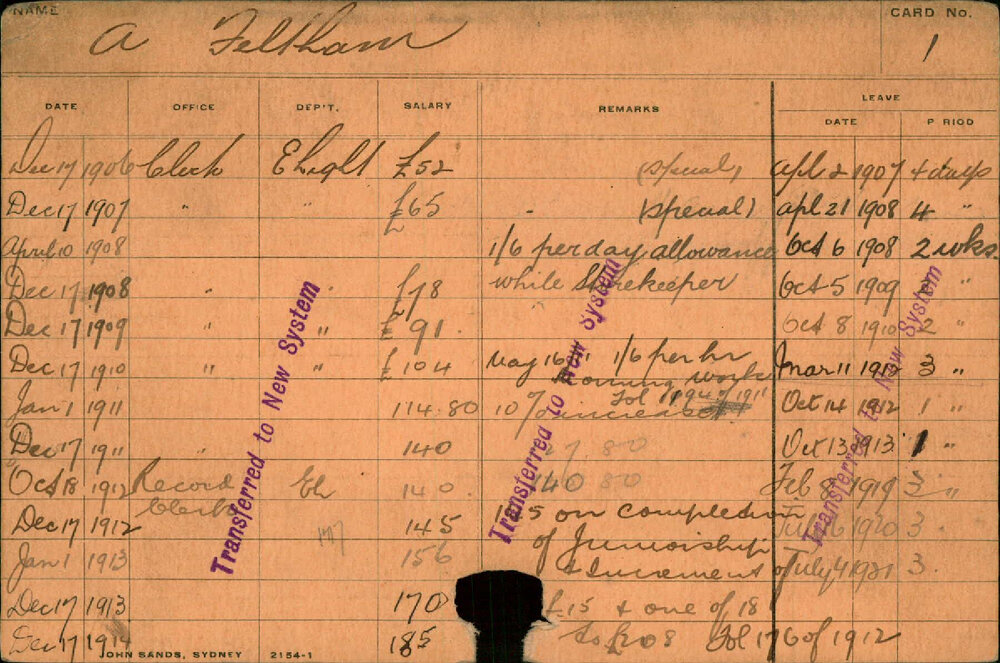 NAME
A Feltham
CARD No.
1
DATE OFFICE DEP'T. SALARY REMARKS LEAVE
DATE P RIOD
Dec 17 1906 Clerk E Light £52 (special) Apl 2 1907 4 days
Dec 17 1907 " " £65 (special) apl 21 1908 4 "
April 10 1908 1/6 per day allowance Oct 6 1908 2 wks.
Dec 17 1908 " £78 while Storekeeper Oct 5 1909 "
Dec 17 1909 " " £91 Oct 8 1910 2 "
Dec 17 1910 " " £104 May 16 11 1/6 per hr Mar 11 1912 3 "
evening work
Jan 1 1911 114.80 10% increase Fol 1911 Oct 14 1912 1 "
Dec 17 1911 " 140 27 80 Oct 13 1913 1 "
Oct 18 1912 Record Clerk EL 140 140 80 Feb 8 1919 3 "
Dec 17 1912 145 on completion 1920 3
Jan 1 1913 156 of Juniorship & Increment of July 4 1921 3.
Dec 17 1913 170 £15 & one of 18
Dec 17 1914 185 to £208 Fol 176 of 1912
Transferred to New System
Transferred to New System
Transferred to New System
JOHN SANDS, SYDNEY 2154-1